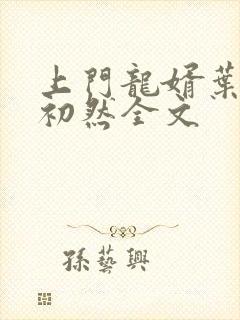 上門龍婿葉
初然全文
孫藝興